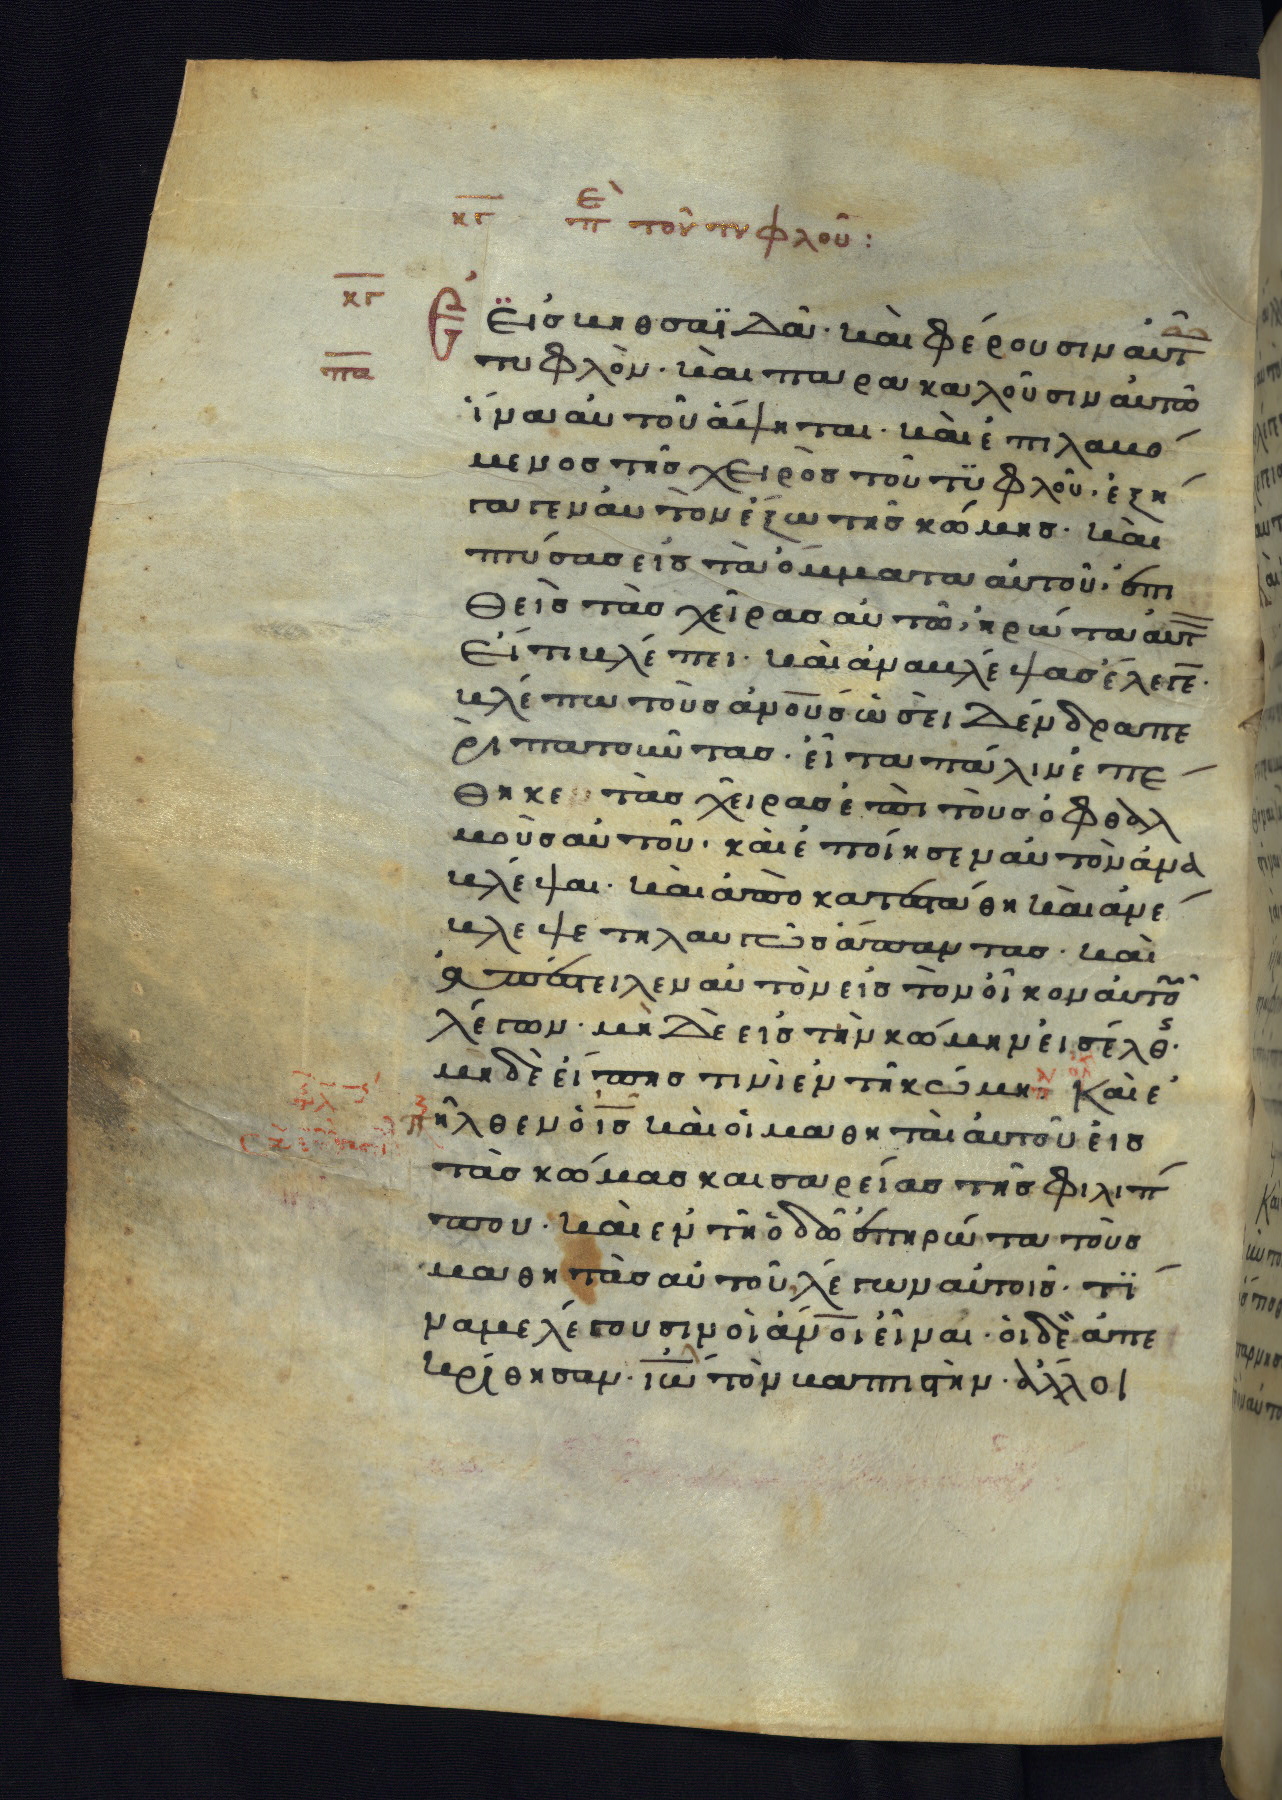 κγ ἐπὶ τοῦ τυφλοῦ:
κγ
πα
Ἔ εἰσ βηθσαϊδὰ· καὶ φέρουσιν αὐτῶ
τυφλὸν· καὶ παρακαλοῦσιν αὐτὸ
ἵνα αὐτοῦ ἅψηται· καὶ ἐπιλαβό
μενοσ τῆσ χειρὸσ τοῦ τϋφλοῦ· ἐξή
γαγεν αὐτὸν ἔξω τῆσ κώμησ· καὶ
πτύσασ εἰσ τὰ ὄμματα αὐτοῦ· ἐπι
θεὶσ τὰσ χεῖρασ αὐτῶ, ἠρώτα αὐτ
εἴ τι βλέπει· καὶ ἀναβλέψασ ἔλεγε·
βλέπω τοὺσ ἀνουσ ὡσεὶ δένδρα πε
ριπατοῦντασ· εἶτα πάλιν ἐπέ
θηκε τὰσ χεῖρασ ἐπὶ τοὺσ ὀφθαλ
μοὺσ αὐτοῦ· καὶ ἐποίησεν αὐτὸν ἀνα
βλέψαι· καὶ ἀποκατεστάθη καὶ ἀνέ
βλεψε τηλαυγῶσ ἅπαντασ· καὶ
ἀπέστειλεν αὐτὸν εἰσ τὸν οἶκον αὐτοῦ
λέγων· μὴ δὲ εἰσ τὴν κώμην εἰσέλθησ·
μηδὲ εἴπησ τινὶ ἐν τῆ κώμη Καὶ ἐ
ξῆλθεν ὁ ισ καὶ οἱ μαθηταὶ αὐτοῦ εἰσ
τὰσ κώμασ καισαρείασ τῆσ φιλίπ
που· καὶ ἐν τῆ ὁδῶ ἐπηρώτα τοὺσ
μαθητὰσ αὐτοῦ, λέγων αὐτοισ· τϊ
να με λέγουσιν οἱ ἀνοι εἶναι· οἱ δὲ ἀπε
κρίθησαν· ιω τὸν βαπτιστὴν· ἄλλοι